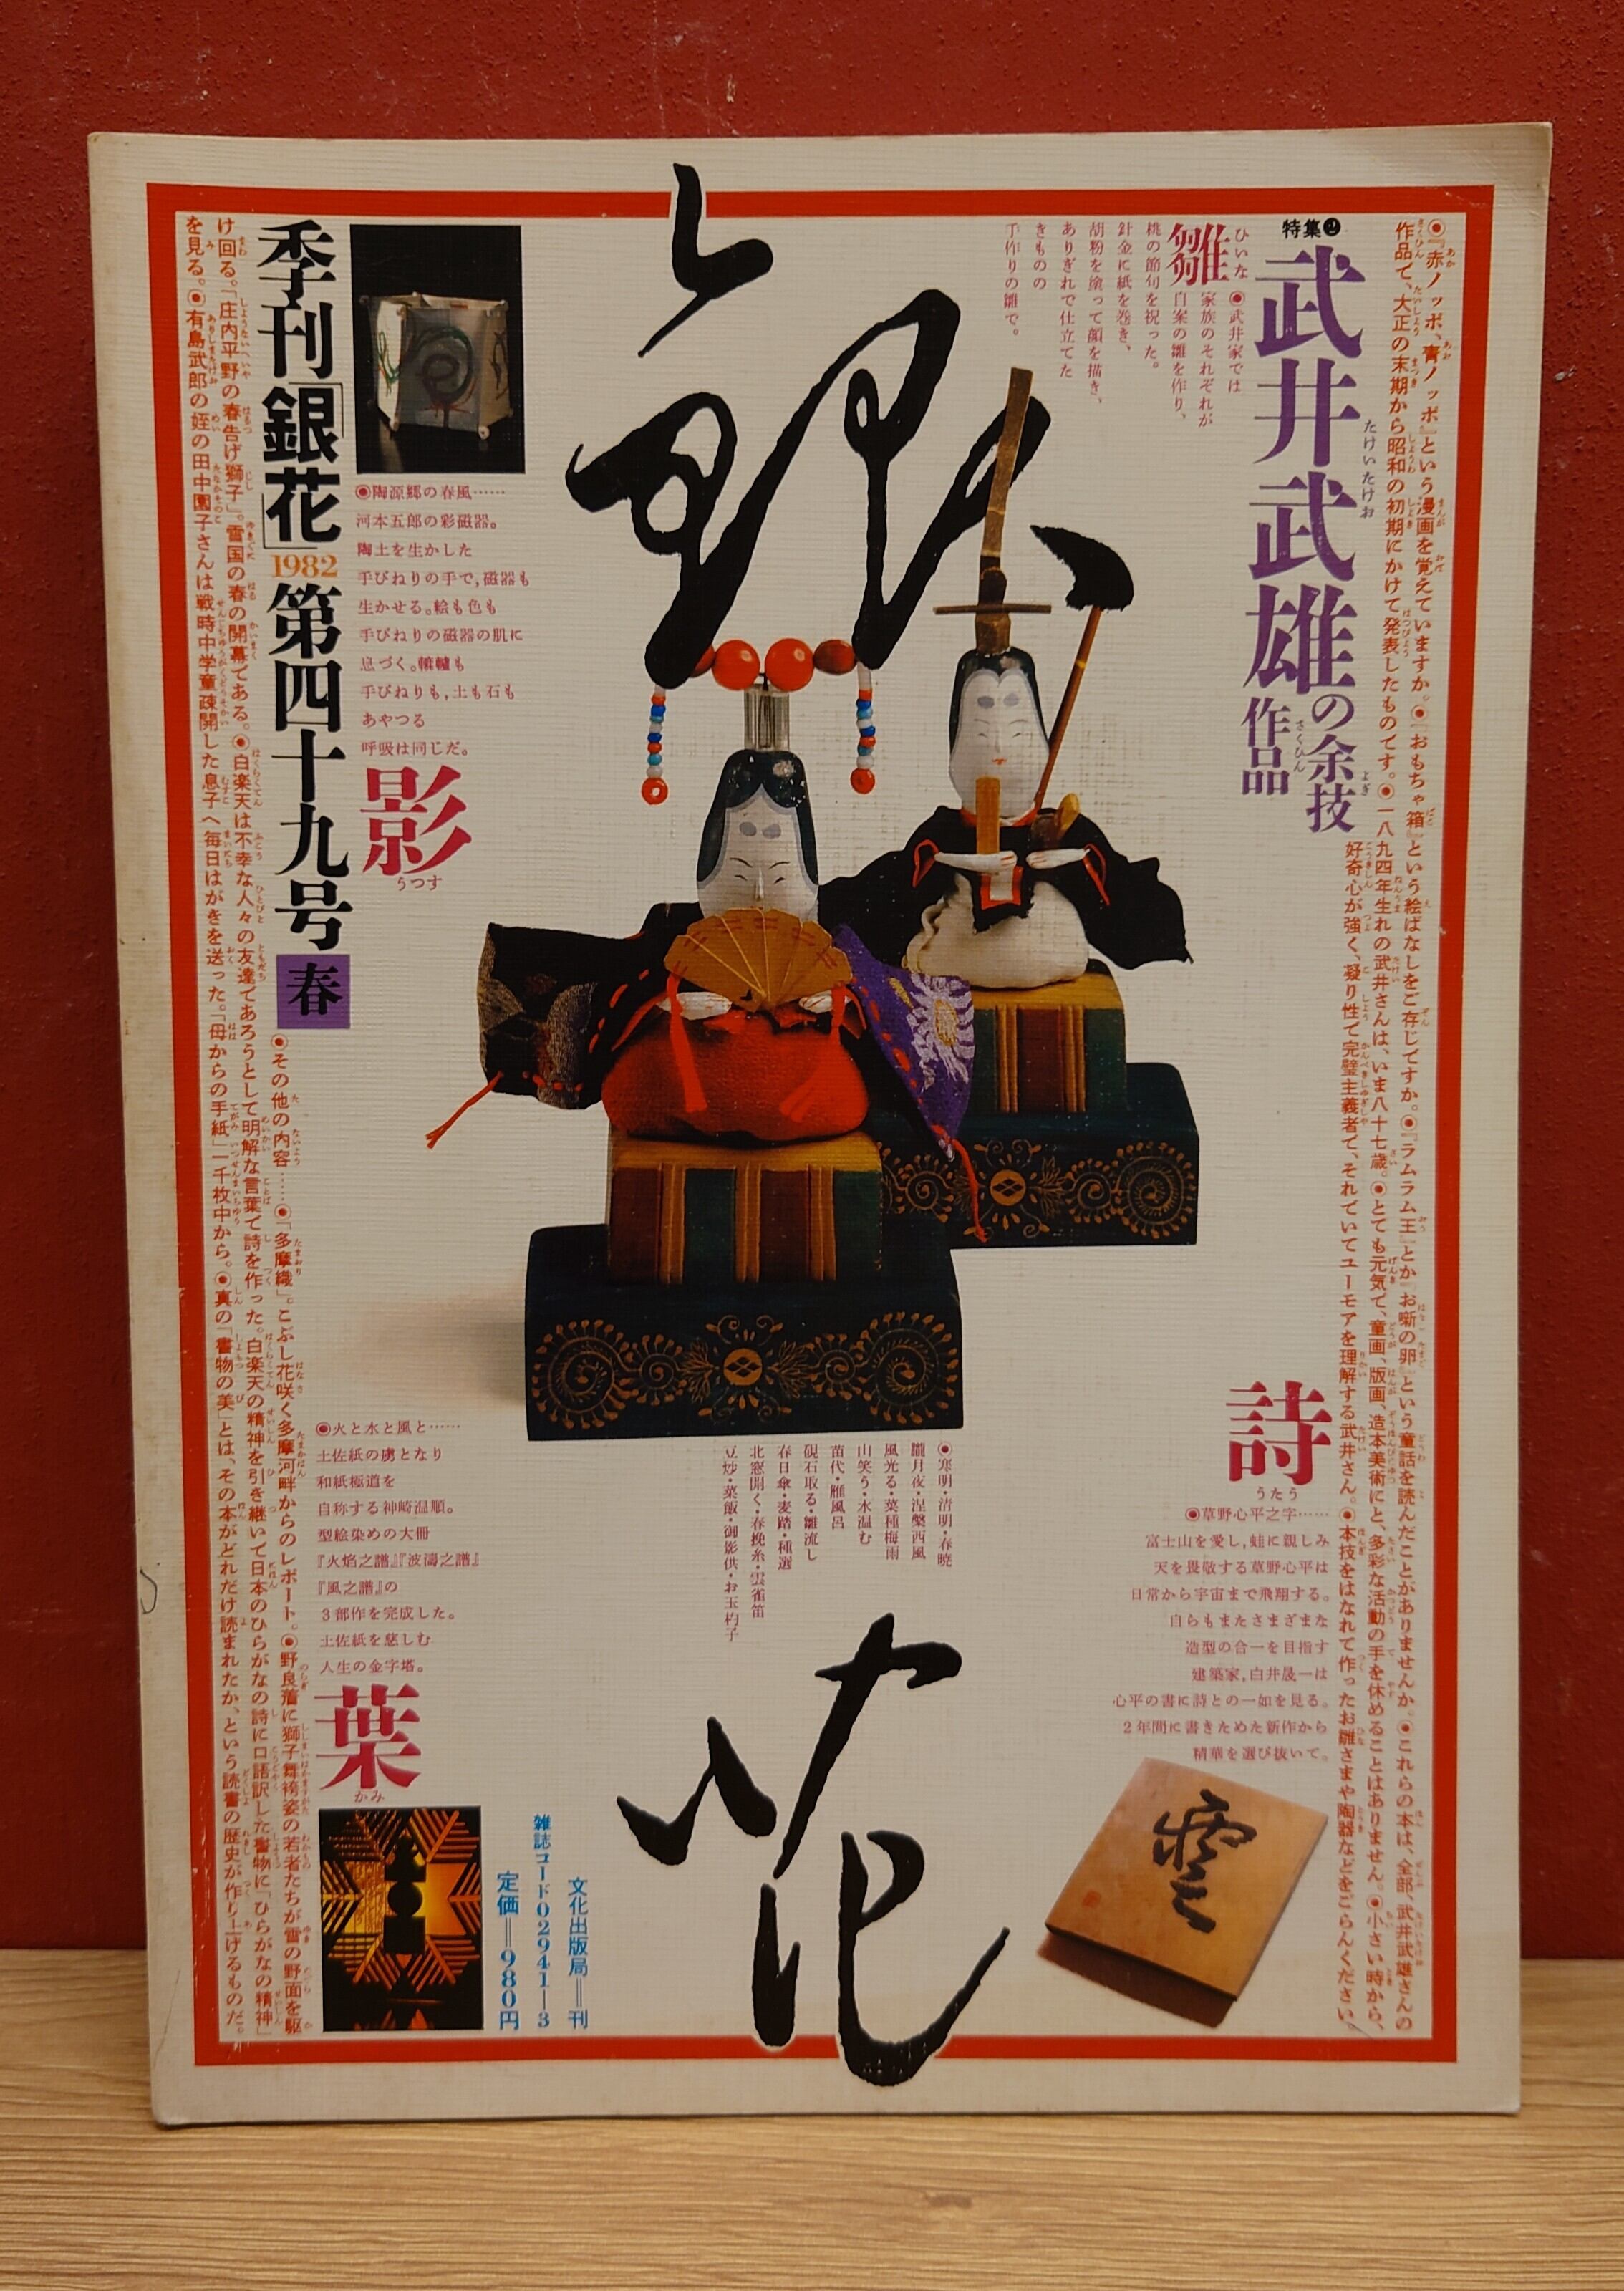 ●『赤ノッポ、青ノッポ』という漫画を覚えていますか。●『おもちゃ箱』という絵ばなしをご存じですか。●『ラムラム王』とか『お噺の卵』という童話を読んだことがありませんか。●これらの本は、全部、武井武雄さんの
作品で、大正の末期から昭和の初期にかけて発表したものです。●一八九四年生れの武井さんは、いま八十七歳。●とても元気で、童画、版画、造本美術にと、多彩な活動の手を休めることはありません。●小さい時から、
好奇心が強く、凝り性で完璧主義者で、それでいてユーモアを理解する武井さん。●本技をはなれて作ったお雛さまや陶器などをごらんください。
特集❷
武井武雄の余技
たけいたけお
よぎ
作品
さくひん
雛
ひいな
●武井家では
家族のそれぞれが
自案の雛を作り、
桃の節句を祝った。
針金に紙を巻き、
胡粉を塗って顔を描き、
ありぎれで仕立てた
きものの
手作りの雛で。
銀花
季刊「銀花」1982第四十九号 春
◉陶源郷の春風……
河本五郎の彩磁器。
陶土を生かした
手びねりの手で,磁器も
生かせる。絵も色も
手びねりの磁器の肌に
息づく。轆轤も
手びねりも,土も石も
あやつる
呼吸は同じだ。
影
うつす
詩
うたう
◉草野心平之字……
富士山を愛し,蛙に親しみ
天を畏敬する草野心平は
日常から宇宙まで飛翔する。
自らもまたさまざまな
造型の合一を目指す
建築家,白井晟一は
心平の書に詩との一如を見る。
2年間に書きためた新作から
精華を選び抜いて。
雲
●寒明・清明・春暁
朧月夜・涅槃西風
風光る・菜種梅雨
山笑う・水温む
苗代・雁風呂
硯石取る・雛流し
春日傘・麦踏・種選
北窓開く・春挽糸・雲雀笛
豆炒・菜飯・御影供・お玉杓子
◉火と水と風と……
土佐紙の虜となり
和紙極道を
自称する神崎温順。
型絵染めの大冊
『火焔之譜』『波濤之譜』
『風之譜』の
3部作を完成した。
土佐紙を慈しむ
人生の金字塔。
葉
かみ
●その他の内容……●「多摩織」。こぶし花咲く多摩河畔からのレポート。●野良着に獅子舞袴姿の若者たちが雪の野面を駆
け回る。「庄内平野の春告げ獅子」。雪国の春の開幕である。●白楽天は不幸な人々の友達であろうとして明解な言葉で詩を作った。白楽天の精神を引き継いで日本のひらがなの詩に口語訳した書物に「ひらがなの精神」
を見る。●有島武郎の姪の田中園子さんは戦時中学童疎開した息子へ毎日はがきを送った。「母からの手紙」一千枚中から。●真の「書物の美」とは、その本がどれだけ読まれたか、という読書の歴史が作り上げるものだ。
文化出版局＝刊
雑誌コード02941―3
定価＝980円